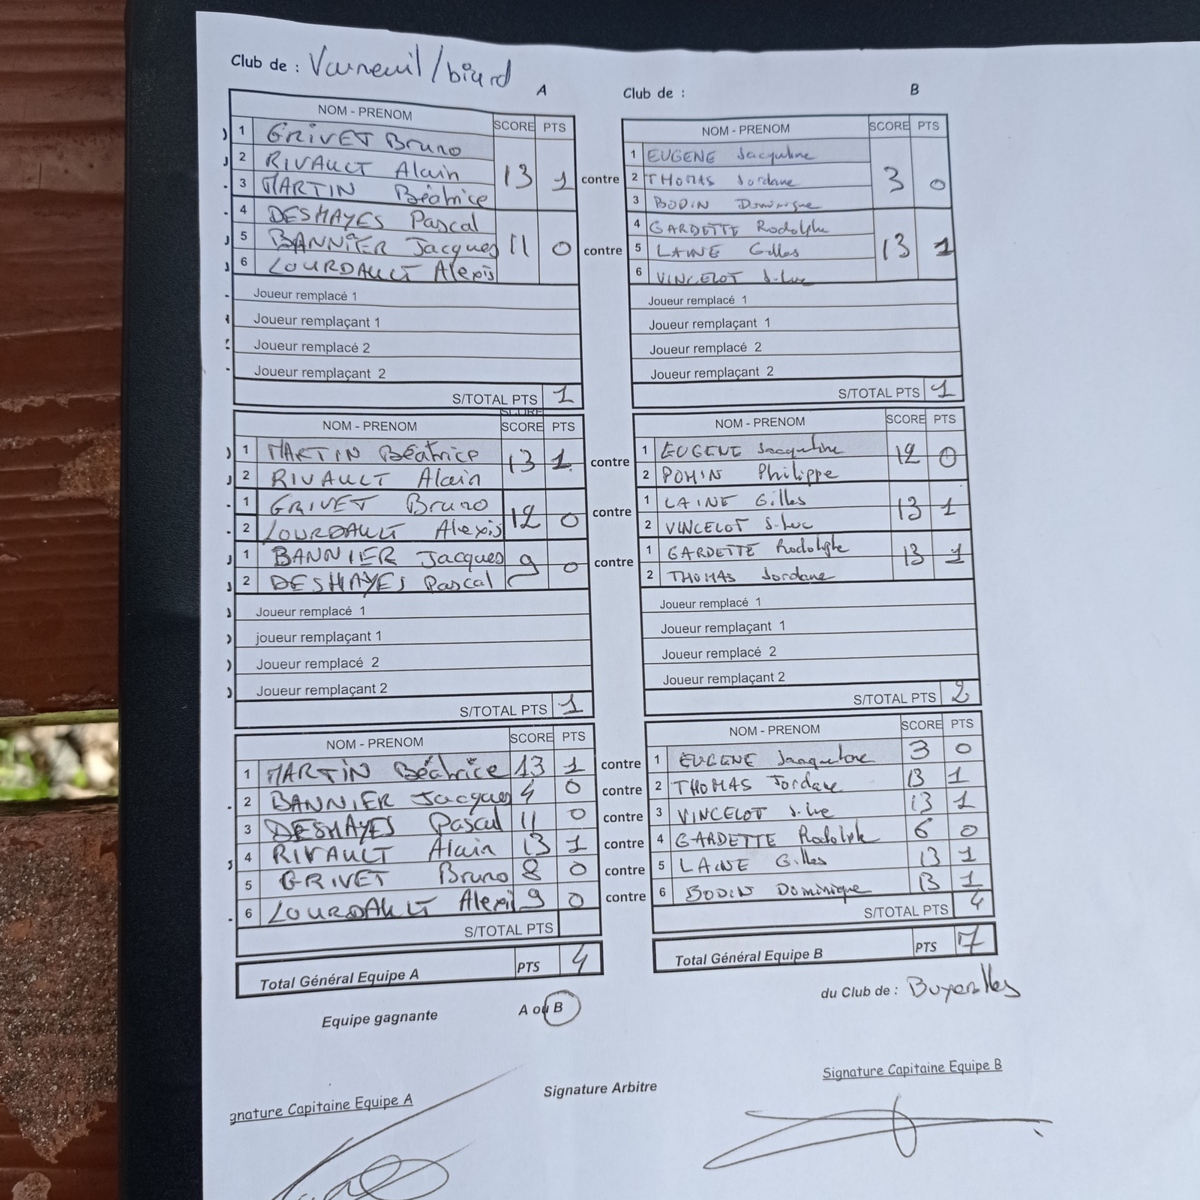 Club de : Verneuil/biard A
NOM - PRENOM SCORE PTS
1 GRIVET Bruno
2 RIVAULT Alain 13 1 contre
3 MARTIN Béatrice
4 DESHAYES Pascal
5 BANNIER Jacques 11 0 contre
6 LOURDAULT Alexis
Joueur remplacé 1
Joueur remplaçant 1
Joueur remplacé 2
Joueur remplaçant 2
S/TOTAL PTS 1
NOM - PRENOM SCORE PTS
1 MARTIN Béatrice 13 1 contre
2 RIVAULT Alain
1 GRIVET Bruno 12 0 contre
2 LOURDAULT Alexis
1 BANNIER Jacques 9 0 contre
2 DESHAYES Pascal
Joueur remplacé 1
joueur remplaçant 1
Joueur remplacé 2
Joueur remplaçant 2
S/TOTAL PTS 1
NOM - PRENOM SCORE PTS
1 MARTIN Béatrice 13 1 contre
2 BANNIER Jacques 4 0 contre
3 DESHAYES Pascal 11 0 contre
4 RIVAULT Alain 13 1 contre
5 GRIVET Bruno 8 0 contre
6 LOURDAULT Alexis 9 0 contre
S/TOTAL PTS
Total Général Equipe A PTS 4
Equipe gagnante A ou B
gnature Capitaine Equipe A
Signature Arbitre
Club de : B
NOM - PRENOM SCORE PTS
1 EUGENE Jacqueline
2 THOMAS Jordane 3 0
3 BODIN Dominique
4 GARDETTE Rodolphe
5 LAINE Gilles 13 1
6 VINCELOT J-Luc
Joueur remplacé 1
Joueur remplaçant 1
Joueur remplacé 2
Joueur remplaçant 2
S/TOTAL PTS 1
NOM - PRENOM SCORE PTS
1 EUGENE Jacqueline 12 0
2 Philippe
1 LAINE Gilles 13 1
2 VINCELOT J-Luc
1 GARDETTE Rodolphe 13 1
2 THOMAS Jordane
Joueur remplacé 1
Joueur remplaçant 1
Joueur remplacé 2
Joueur remplaçant 2
S/TOTAL PTS 2
NOM - PRENOM SCORE PTS
1 EUGENE Jacqueline 3 0
2 THOMAS Jordane 13 1
3 VINCELOT J-Luc 13 1
4 GARDETTE Rodolphe 6 0
5 LAINE Gilles 13 1
6 BODIN Dominique 13 1
S/TOTAL PTS 4
Total Général Equipe B PTS 7
du Club de :
Signature Capitaine Equipe B